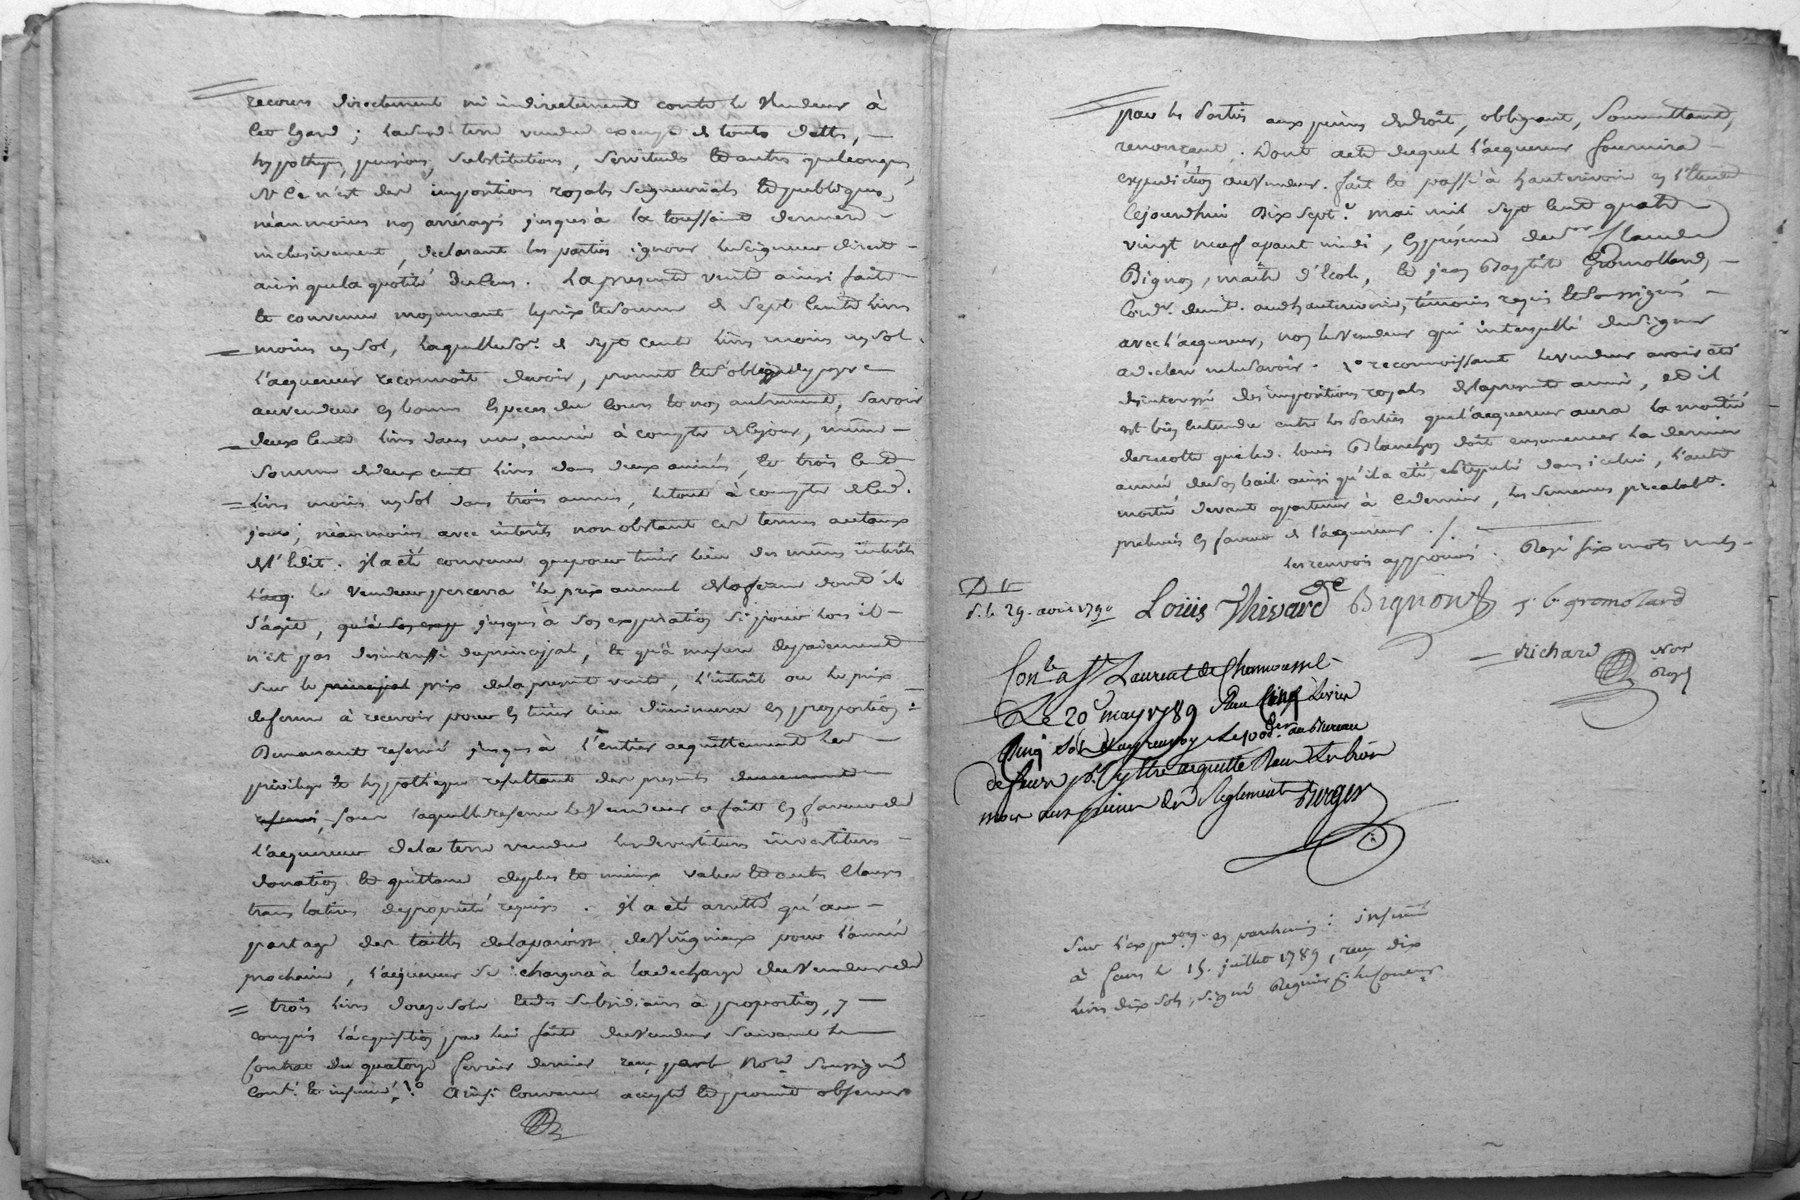 recours directement ni indirectement contre le Vendeur à
cet Egard ; laditte terre vendue exempte de toutes dettes,
hypotheques, pensions, substitutions, servitudes et autres quelconques,
si ce n'est des impositions royales seigneuriales et publiques,
néanmoins non arréragés jusques à la toussaint derniere
inclusivement, declarant les parties ignorer le seigneur direct
ainsi que la quotité du Cens. La presente vente ainsi faite
et convenue moyennant le prix et somme de Sept Cents livres
moins un sol, laquelle so.e de sept cents livres moins un sol
l'acquereur reconnoit devoir, promet et s'oblige de payer
au vendeur en bonnes Especes du Cours et non autrement, Savoir
deux Cents livres dans une année à compter de ce jour, même
Somme de deux cents livres dans deux années, et trois Cents
livres moins un sol dans trois années, le tout à compter de ced.
jour ; néanmoins avec intérêts nonobstant ces termes au taux
de l'Edit. il a été convenu que pour tenir lieu des mêmes intérêts
l'acq. le Vendeur percevra le prix annuel de la ferme dont il
s'agit, jusques à son expiration si pour lors il
n'est pas desinteressé du principal, et qu'à mesure de payement
sur le principal prix de la presente vente, l'intérêt ou le prix
de ferme à recevoir pour en tenir lieu diminuera en proportion
Demeurant reservé jusques à l'entier acquittement les
privilege et hypotheque resultant des presentes demeurant
reservés, sous laquelle reserve le Vendeur a fait en faveur de
l'acquereur de la terre vendue les devestitures investitures
donation et quittance de plus et mieux value et autres Clauses
translatives de propriété requises. il a été arretté qu'au
partage des tailles de la paroisse de Virigneux pour l'année
prochaine, l'acquereur se chargera à la decharge du Vendeur de
trois livres et des subsidiaires à proportion, y
compris l'acquisition par lui faite du Vendeur suivant le
Contrat du quatorze fevrier dernier reçu par le No.re soussigné
Cont. et insinué. 1° Ainsi Convenu accepté et promis observer
par les Parties aux peines de droit, obligeant, Soumettant,
renonçant. Dont acte duquel l'acquereur fournira
expedition au Vendeur. fait et passé à hauterivoire en l'Etude
Cejourdhui Dix sept.e mai mil sept Cent quatre
vingt neuf apant midi, En présence de s.r Claude
Bignon, maitre d'Ecole, et jean Baptiste Gromolland,
Cord.r demt. aud. hauterivoire, témoins requis et soussignés
avec l'acquereur, non le Vendeur qui interpellé de signer
a declaré ne le savoir. 1° reconnoissant le vendeur avoir été
desinteressé des impositions royales de la presente année, et il
est bien entendu entre les Parties que l'acquereur aura la moitié
de recolte que led. Louis Blanchon doit ensemencer la derniere
année de son bail ainsi qu'il a été stipulé dans icelui, l'autre
moitié devant apartenir à ce dernier, les semences prealabt.
prelevés en faveur de l'acquereur ./.
les renvois approuvés. Rayé six mots nuls
D. E
S. le 29. avril 1790
Louis Thivard Bignon j. b. gromolard
Richard Not. Royl
Con.le a S.t Laurent de Chamousset
Le 20 may 1789 Reçu Cinq Livres
au Bureau
de feurs acquitté
mois aux peines du Reglement Burger
Sur l'exped.on en parchemin : insinué
à feurs le 15. juillet 1789, reçu dix
livres dix sols, signé Regnier